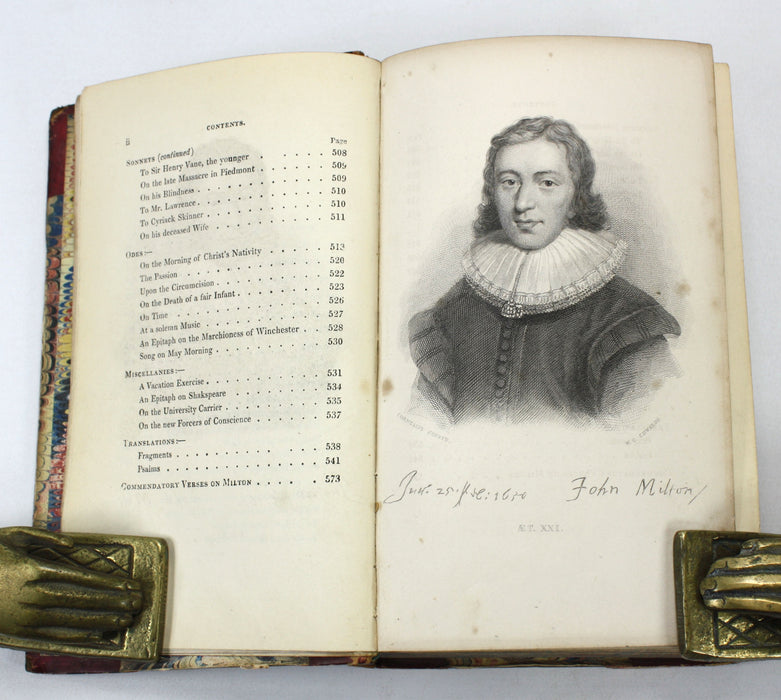 ii
CONTENTS.
Page
SONNETS (continued)
To Sir Henry Vane, the younger . . . . . . 508
On the late Massacre in Piedmont . . . . . 509
On his Blindness . . . . . . . . . 509
To Mr. Lawrence . . . . . . . . . 510
To Cyriack Skinner . . . . . . . . 510
On his deceased Wife . . . . . . . . 511
ODES:—
On the Morning of Christ's Nativity . . . . . 513
The Passion . . . . . . . . . . 520
Upon the Circumcision . . . . . . . . 522
On the Death of a fair Infant . . . . . . . 523
On Time . . . . . . . . . . . 526
At a solemn Music . . . . . . . . . 527
An Epitaph on the Marchioness of Winchester . . 528
Song on May Morning . . . . . . . . 530
MISCELLANIES:—
A Vacation Exercise . . . . . . . . . 531
An Epitaph on Shakspeare . . . . . . . 534
On the University Carrier . . . . . . . 535
On the new Forcers of Conscience . . . . . 537
TRANSLATIONS:—
Fragments . . . . . . . . . . 538
Psalms . . . . . . . . . . . 541
COMMENDATORY VERSES ON MILTON . . . . . 573
John Milton
ÆT. XXI.